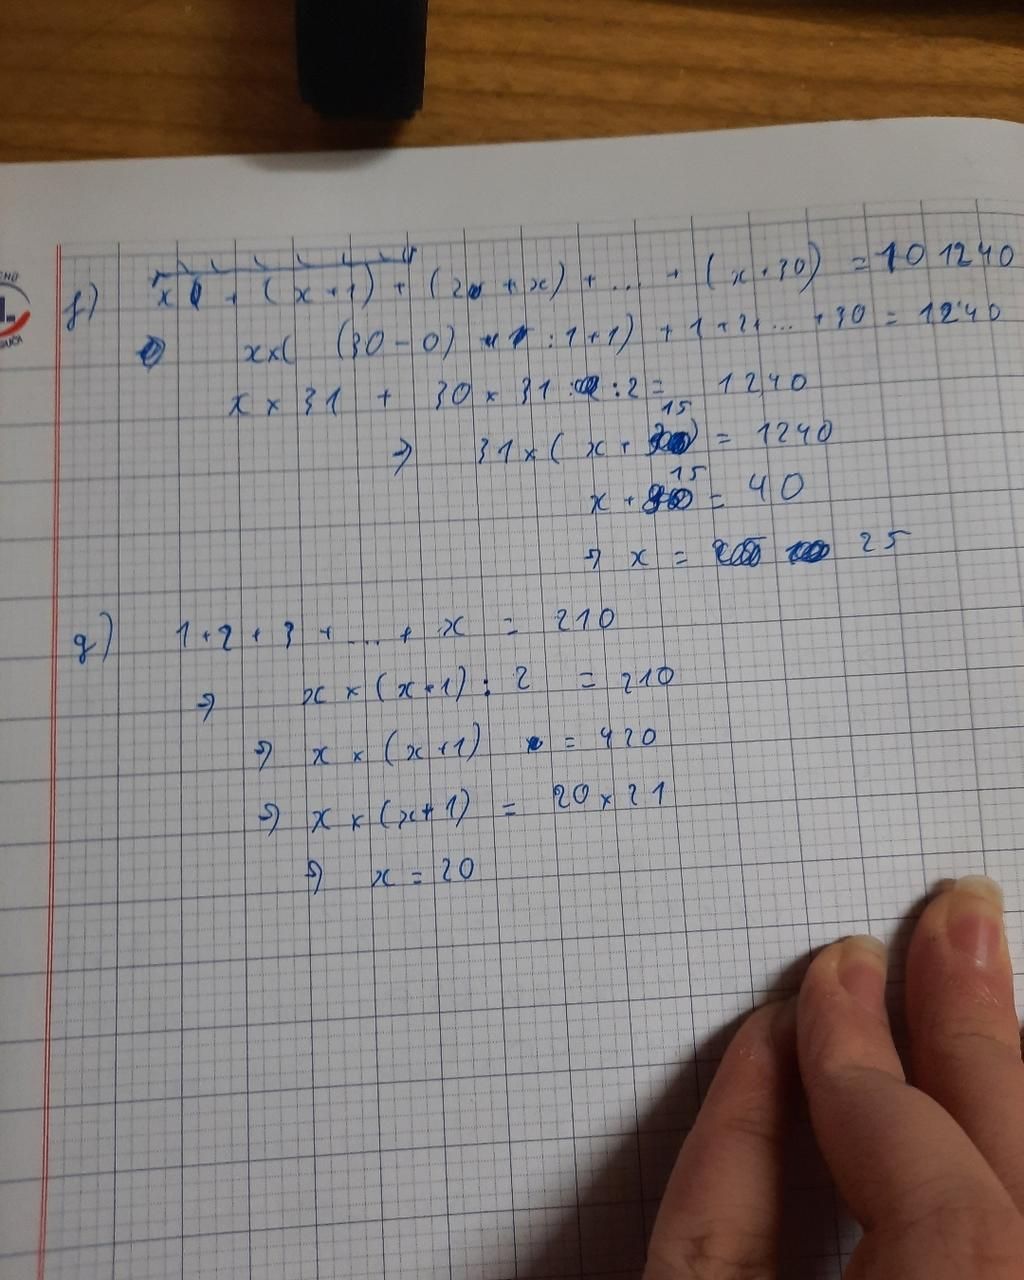 f) x + (x+1) + (2+x) + ... + (x+30) = 10 1240
x×( (30-0) :1+1) + 1+2+...+30 = 1240
x × 31 + 30 × 31 :2 = 1240
⇒ 31×( x + 15) = 1240
x + 15 = 40
⇒ x = 25
g) 1+2+3+...+ x = 210
⇒ x × (x+1) : 2 = 210
⇒ x × (x+1) = 420
⇒ x × (x+1) = 20×21
⇒ x = 20